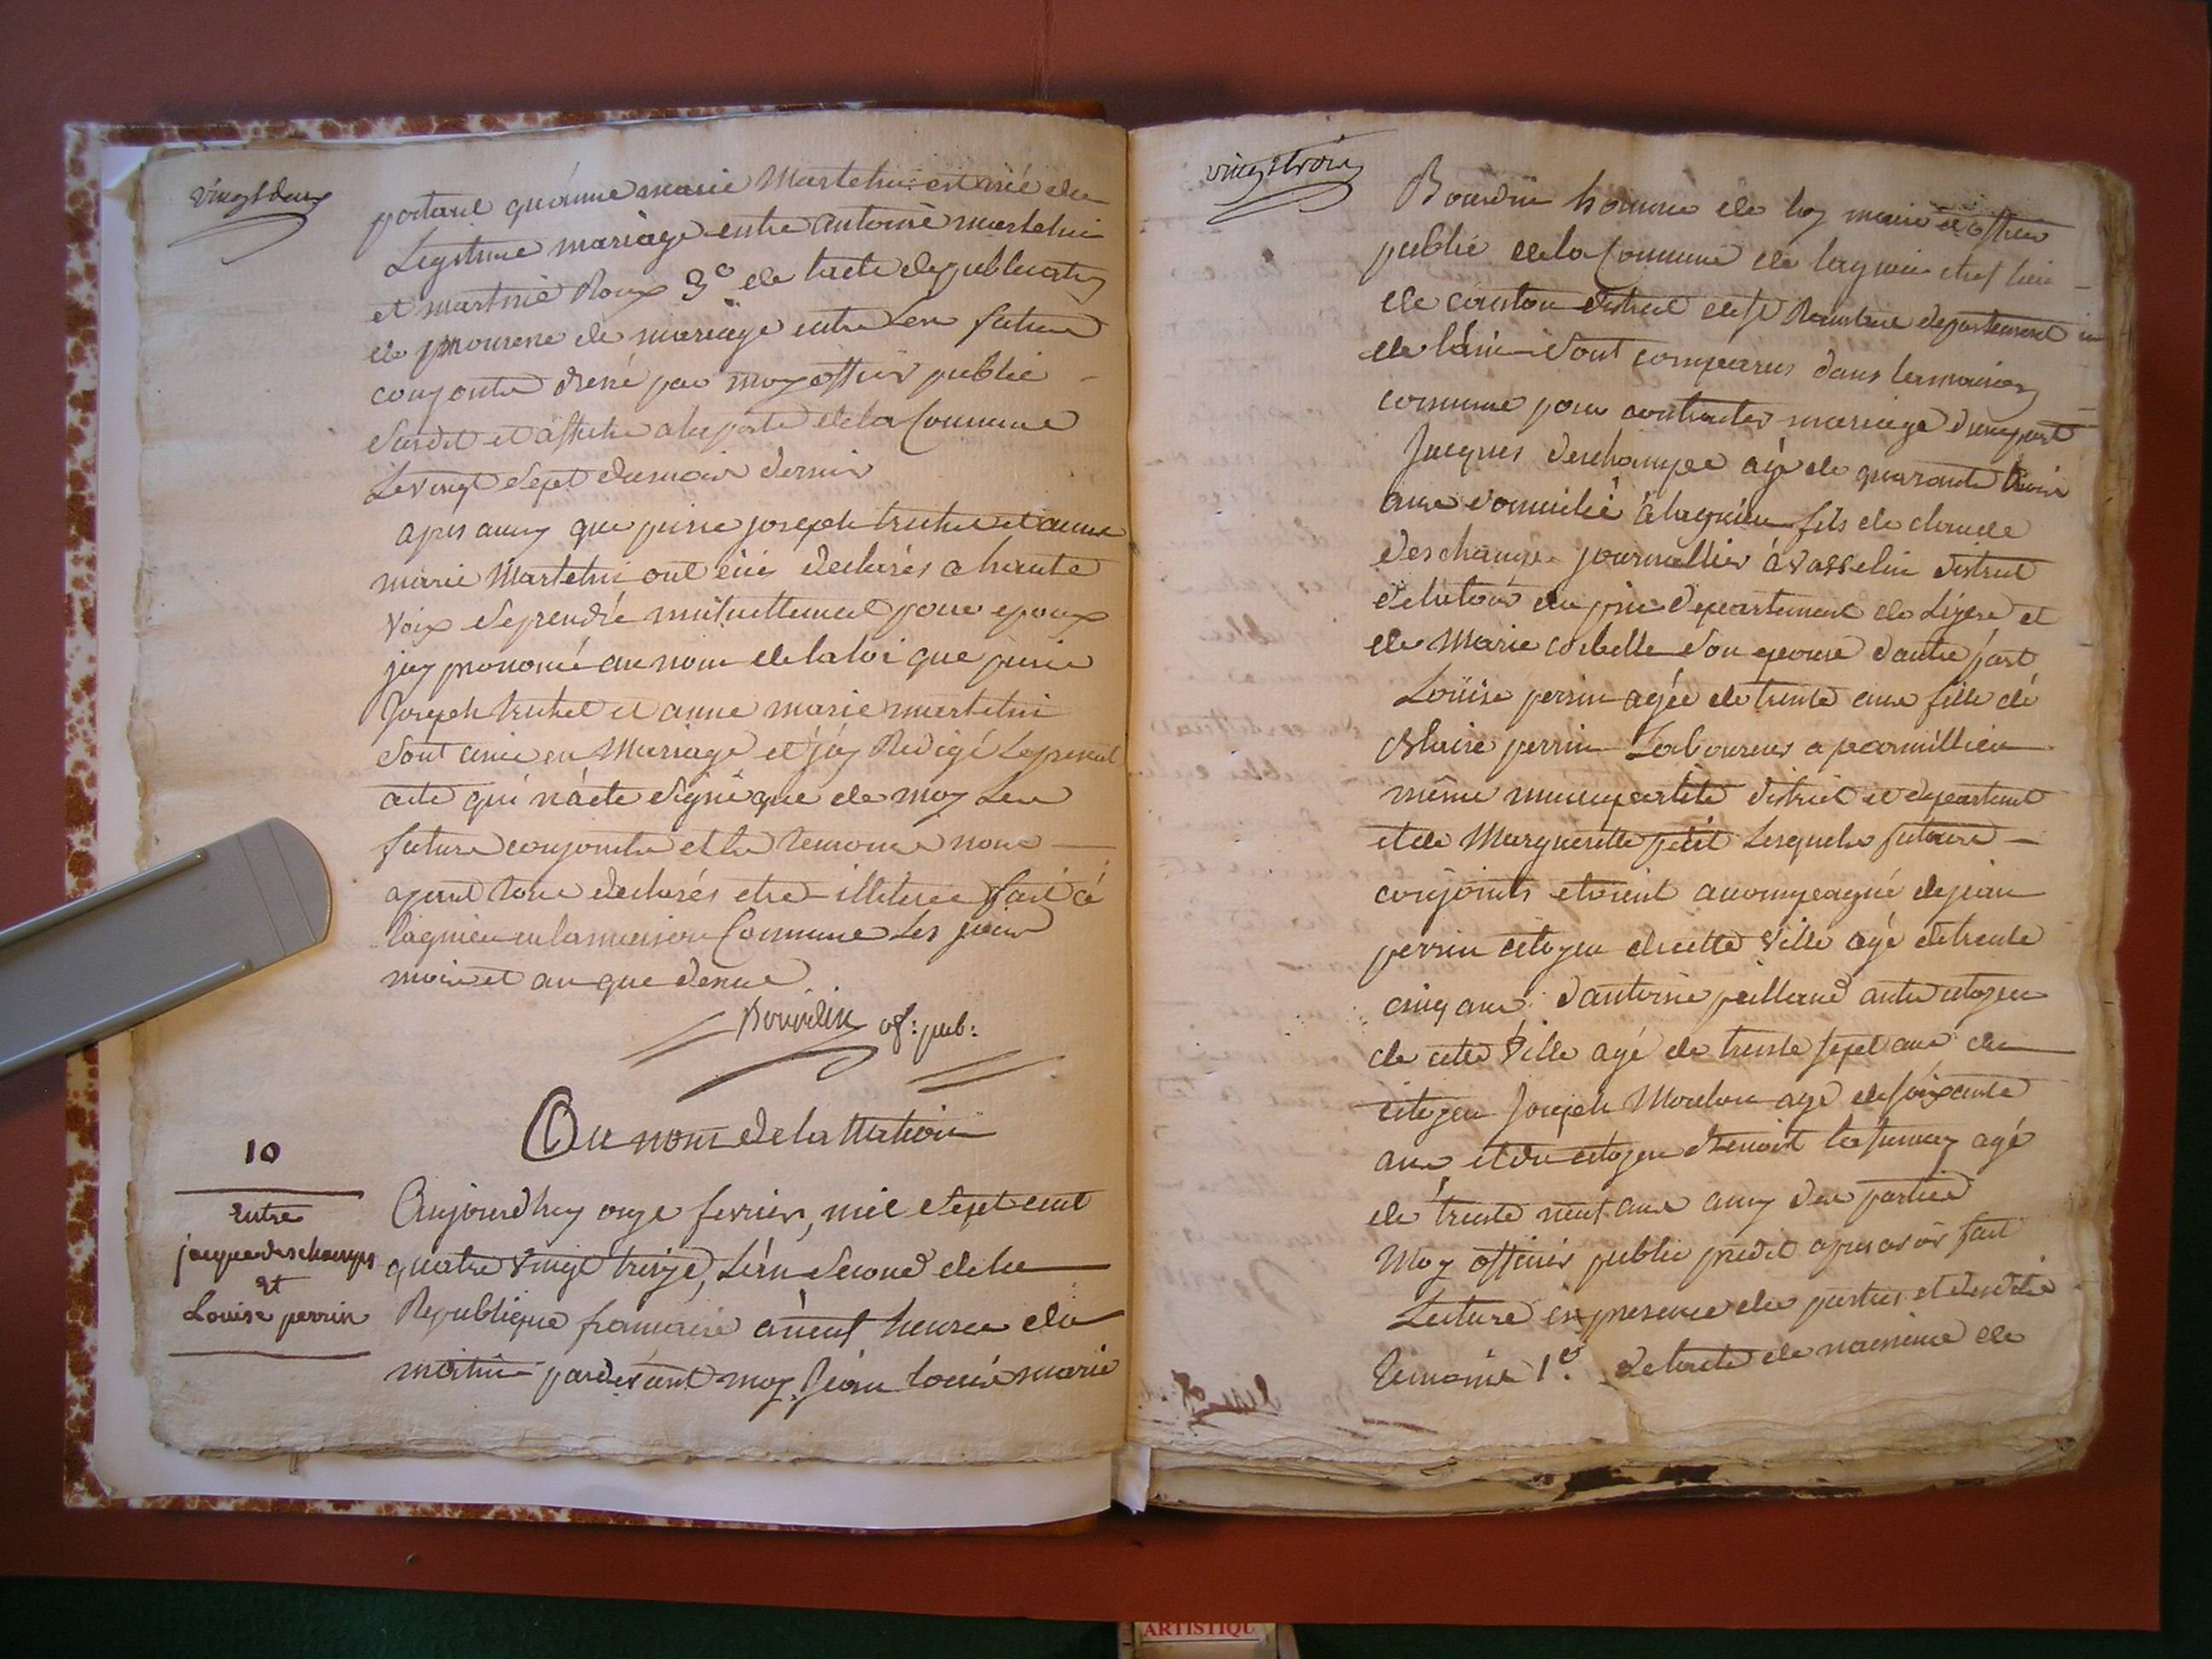 vingt deux
portant qu'anne marie Martelin est née du
Legitime mariage entre antoine martelin
et martine Roux 3° de lacte de publication
de promesse de mariage entre Les futurs
conjoints dressé par moy officier public
susdit et affiché a la porte de la Commune
Le vingt sept du mois dernier
apres aussy que pierre joseph truchet et anne
marie Martelin ont eüe declarés a haute
voix se prendre mutuellement pour epoux
jay prononcé au nom de la loi que pierre
joseph truchet et anne marie martelin
sont unis en Mariage et jay Redigé Le present
acte qui n'a eté signé que de moy Les
futurs conjoints et les temoins nous
ayant tous declarés etre illiterés fait à
lagnieu en la maison Commune Les jour
mois et an que dessus
Bourdin of: pub:
Au nom de la Nation
10
Entre
jacque deschamps
Et
Louise perrin
Aujourdhuy onze fevrier, mil sept cent
quatre vingt treize, L'an second de la
Republique francaise a neuf heures du
matin pardevant moy Jean Louis marie
vingt trois
Bourdin homme de loy maire et officier
public de la Commune de lagnieu chef lieu
de canton district de st Rambert departement
de lain sont comparus dans la maison
commune pour contracter mariage d'une part
Jacques deschamps agé de quarante trois
ans domicilié à lagnieu fils de claude
deschamps journallier à vasselin district
de la tour du pin departement de Lizere et
de Marie corbelle son epouse d'autre part
Loüise perrin agée de trente ans fille de
Blaise perrin Laboureur a proumillieu
même municipalité district et departement
et de Marguerite petit Lesquels futurs
conjoints etoient accompagné de jean
perrin citoyen de cette ville agé de trente
cinq ans d'antoine paillaud autre citoyen
de cette ville agé de trente sept ans du
citoyen Joseph Moulon agé de soixante
ans et du citoyen Benoit agé
de trente neuf ans amy des parties
Moy officier public predit apres avoir fait
Lecture en presence des parties et desdits
temoins 1° de lacte de naissance de